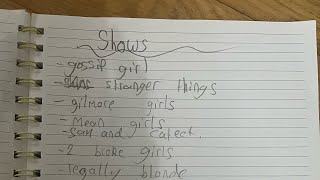 Shows
- gossip girl
- stranger things
- gilmore girls
- mean girls
- Sam and catect.
- 2 broke girls
legally blonde